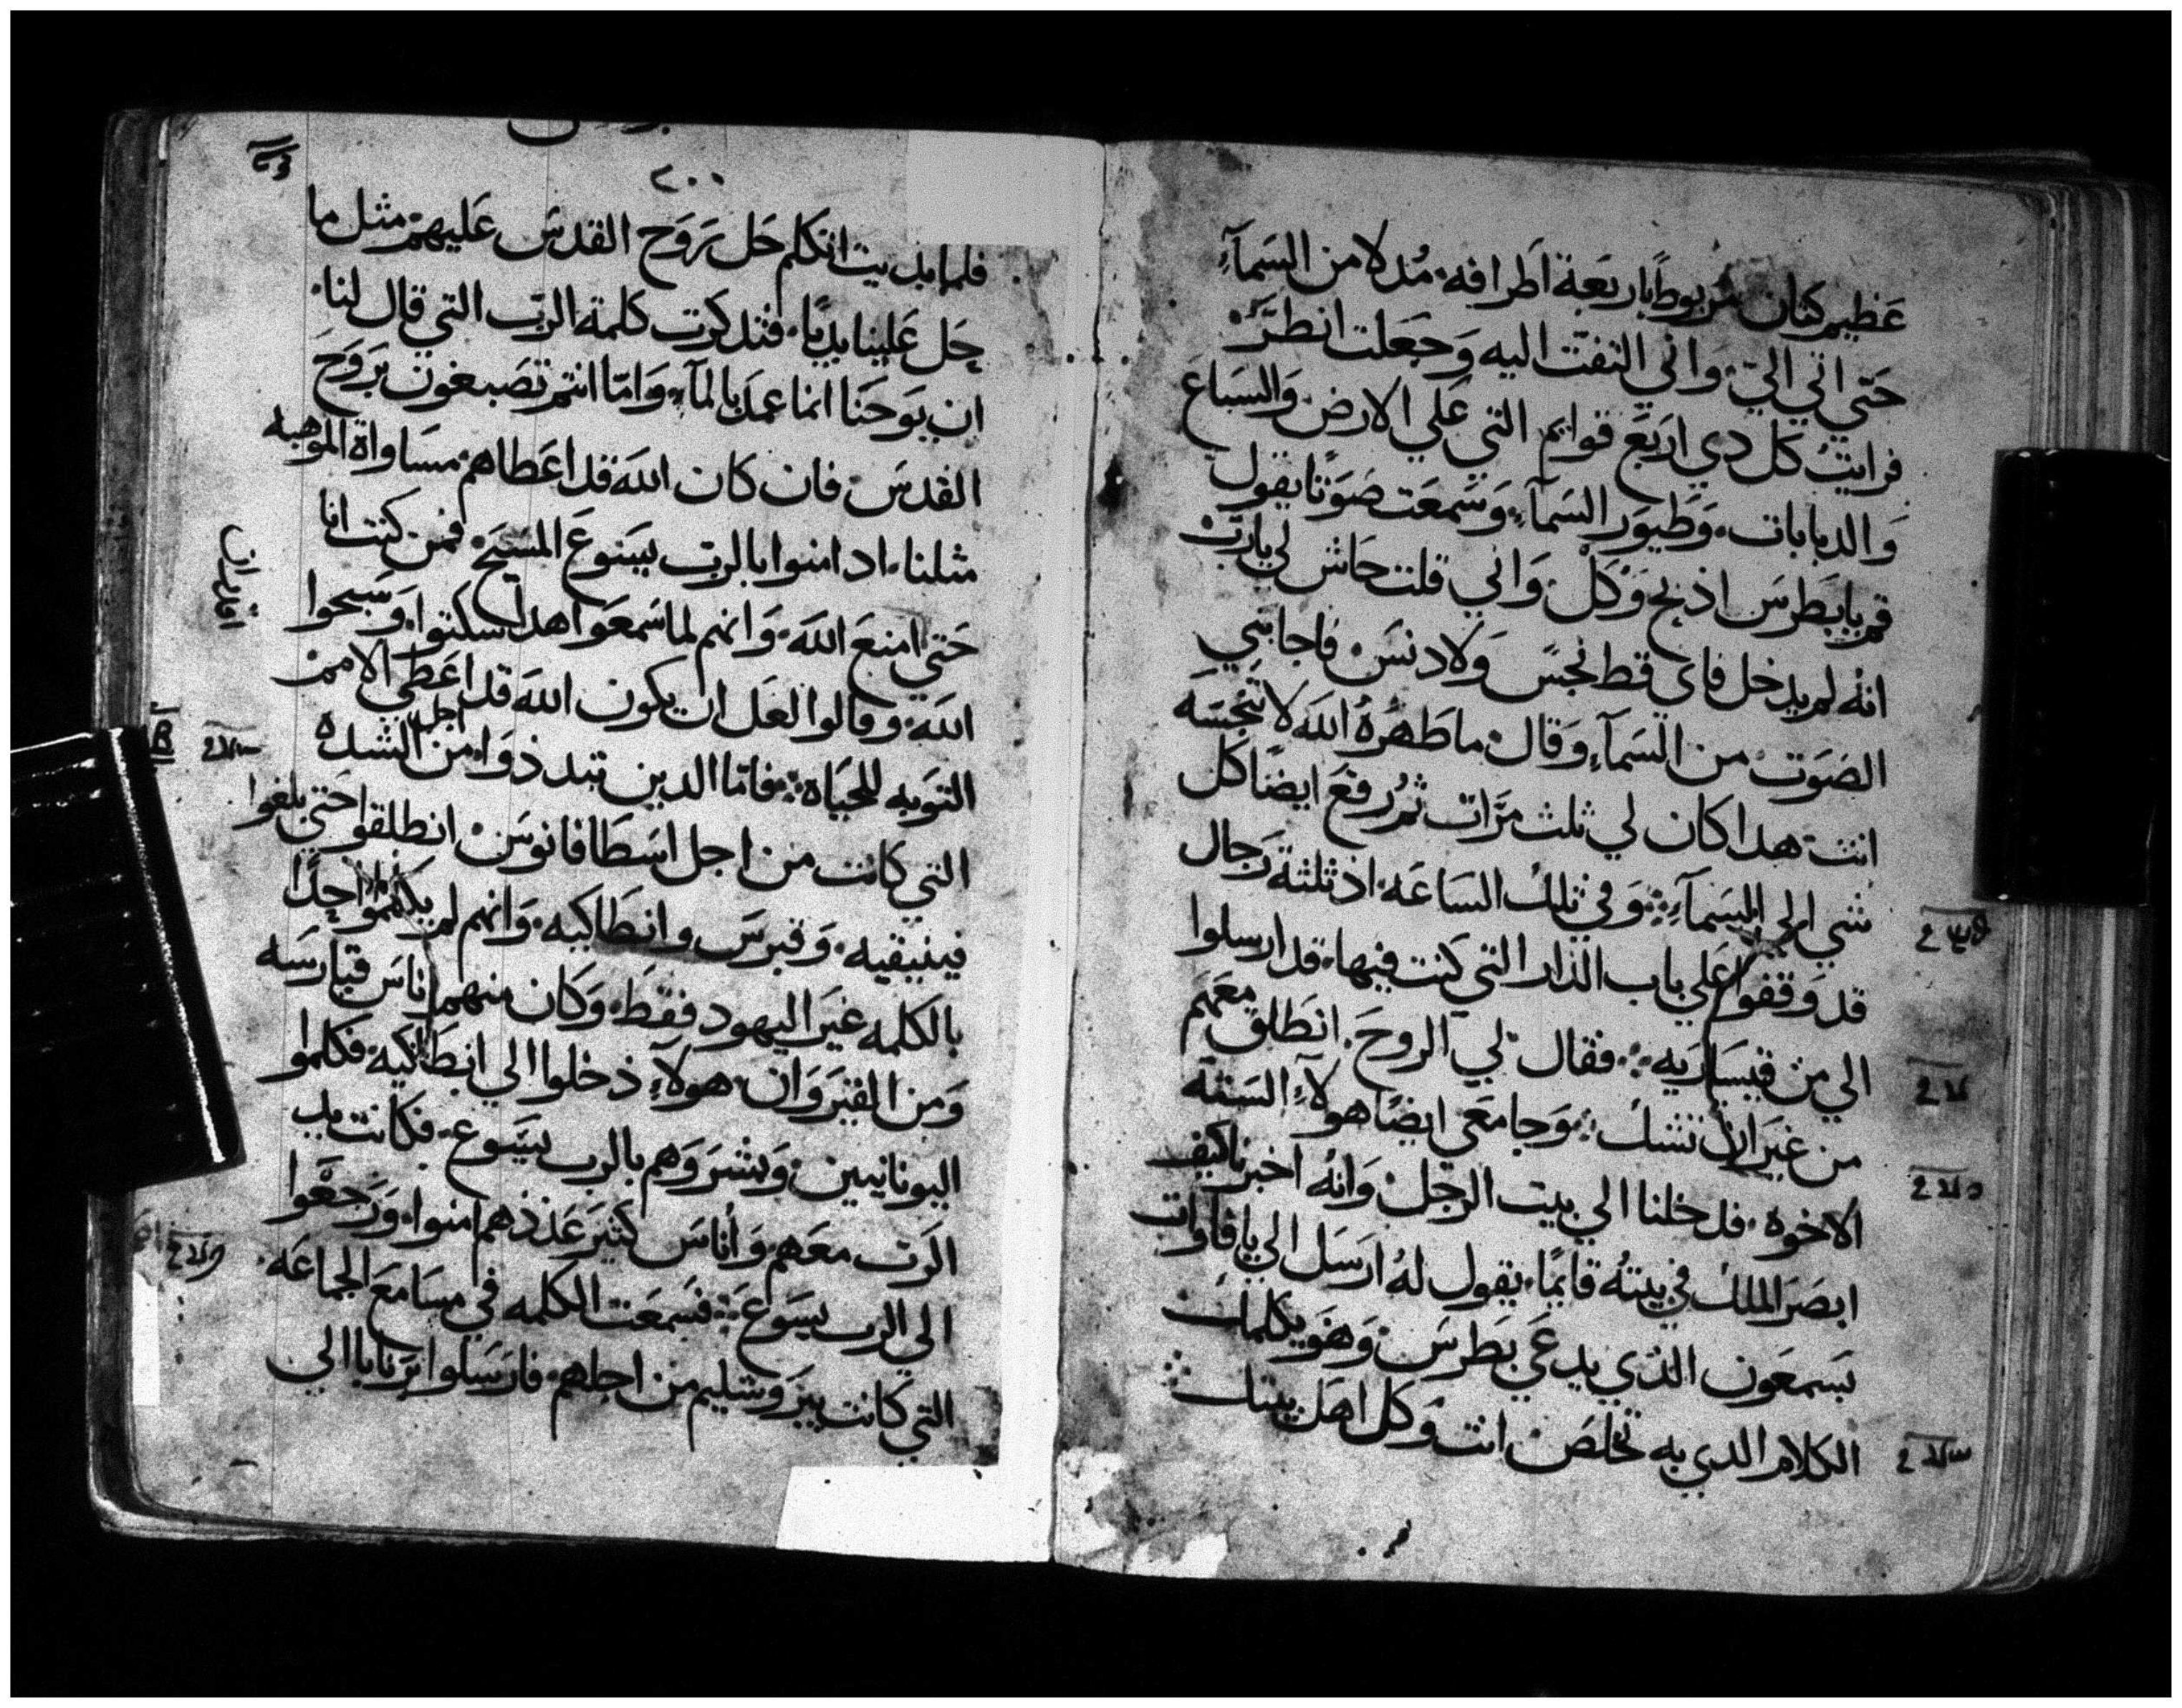 عظيم كتان مربوطاً باربعة اطرافه. مُدلا من السمآءِ
حتي اتي اليّ. واني التفت اليه وجعلت انظرَ
فرايتُ كل دي اربع قوايم التي علي الارض. والسباع
والدبابات. وطيور السمآءِ. وسمعت صوتًا يقول
قم يا بطرس اذبح وكل. واني قلت حاش لي يارب
انه لم يدخل فاي قط نجس ولا دنس. فاجابني
الصوت من السمآءِ وقال. ما طهرهُ الله لا تنجسه
انت. هدا كان لي ثلث مرّات ثمُ رفع ايضًا كل
شي الي السمآءِ. وفي تلك الساعه. اذ ثلثة رجال
قد وقفوا علي باب الدار التي كنت فيها. قد ارسلوا
الي من قيساريه. فقال لي الروح. انطلق معهم
من غير ان تشك. وجا معي ايضًا هولآءِ السته
الاخوه. فدخلنا الي بيت الرجل. وانه اخبرنا كيف
ابصر الملك في بيته قايمًا. يقول لهُ ارسل الي يافا وات
بسمعون الذي يدعي بطرس. وهو يكلمك
الكلام الدي به تخلص انت وكل اهل بيتك
٢٠٠
فلما بديت اتكلم حل روح القدس عليهم. مثل ما
حل علينا بديًا. فتدكرت كلمة الرب التي قال لنا.
ان يوحنا انما عمد بالمآءِ. وامّا انتم تصبغون بروح
القدس. فان كان الله قد اعطاهم. مساواة الموهبه
مثلنا. اد امنوا بالرب يسوع المسيح. فمن كنت انا
حتي امنع الله. وانهم لما سمعوا هدا سكتوا. وسبحوا
الله. وقالوا لعل ان يكون الله قد اعطي الامم
التوبه للحياه. فامّا الدين تبددوا من اجل الشده
التي كانت من اجل اسطافانوس. انطلقوا حتي بلغوا
فينيقيه. وقبرس وانطاكيه. وانهم لم يكلموا احدًا
بالكلمه غير اليهود فقط. وكان منهم اناس قبارسه
ومن القيروان. هولآءِ دخلوا الي انطاكيه. فكلموا
اليونانيين. وبشروهم بالرب يسوع. فكانت يد
الرب معهم. وأناس كثير عددهم امنوا. ورجعوا
الي الرب يسوع. فسمعت الكلمه في مسامع الجماعه.
التي كانت بيروشليم من اجلهم. فارسلوا برنابا الي